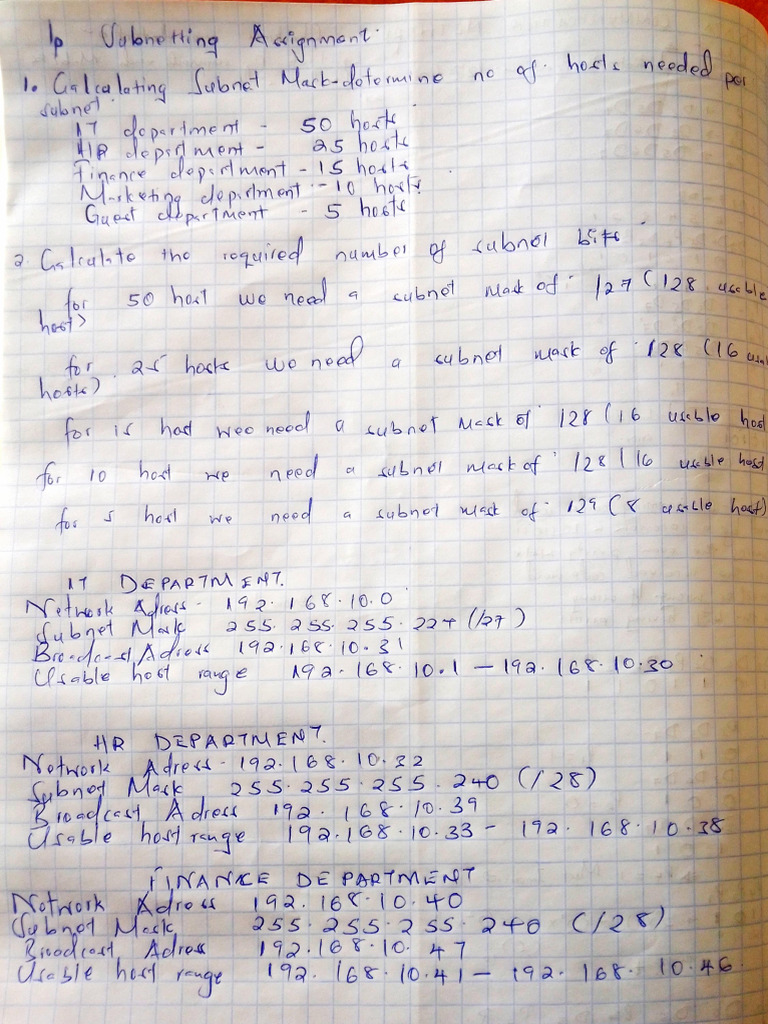 Ip Subnetting Assignment.
1. Calculating Subnet Mask-determine no of hosts needed per
subnet.
IT department - 50 hosts
HR depirtment - 25 hosts
Finance depirtment - 15 hosts
Marketing depirtment - 10 hosts
Guest depirtment - 5 hosts
2. Calculate the required number of subnet bits
for 50 host we need a subnet mask of /27 (128 usable
hosts)
for 25 hosts we need a subnet mask of /28 (16
hosts)
for 15 host wee need a subnet Mask of /28 (16 usable host
for 10 host we need a subnet mask of /28 (16 usable host
for 5 host we need a subnet mask of /29 (8 usable host)
IT DEPARTMENT.
Network Adress - 192.168.10.0
Subnet Mask 255.255.255.224 (/27)
Broadcast Adress 192.168.10.31
Usable host range 192.168.10.1 - 192.168.10.30
HR DEPARTMENT.
Network Adress - 192.168.10.32
Subnet Mask 255.255.255.240 (/28)
Broadcast Adress 192.168.10.39
Usable host range 192.168.10.33 - 192.168.10.38
FINANCE DEPARTMENT
Network Adress 192.168.10.40
Subnet Mask 255.255.255.240 (/28)
Broadcast Adress 192.168.10.47
Usable host range 192.168.10.41 - 192.168.10.46.